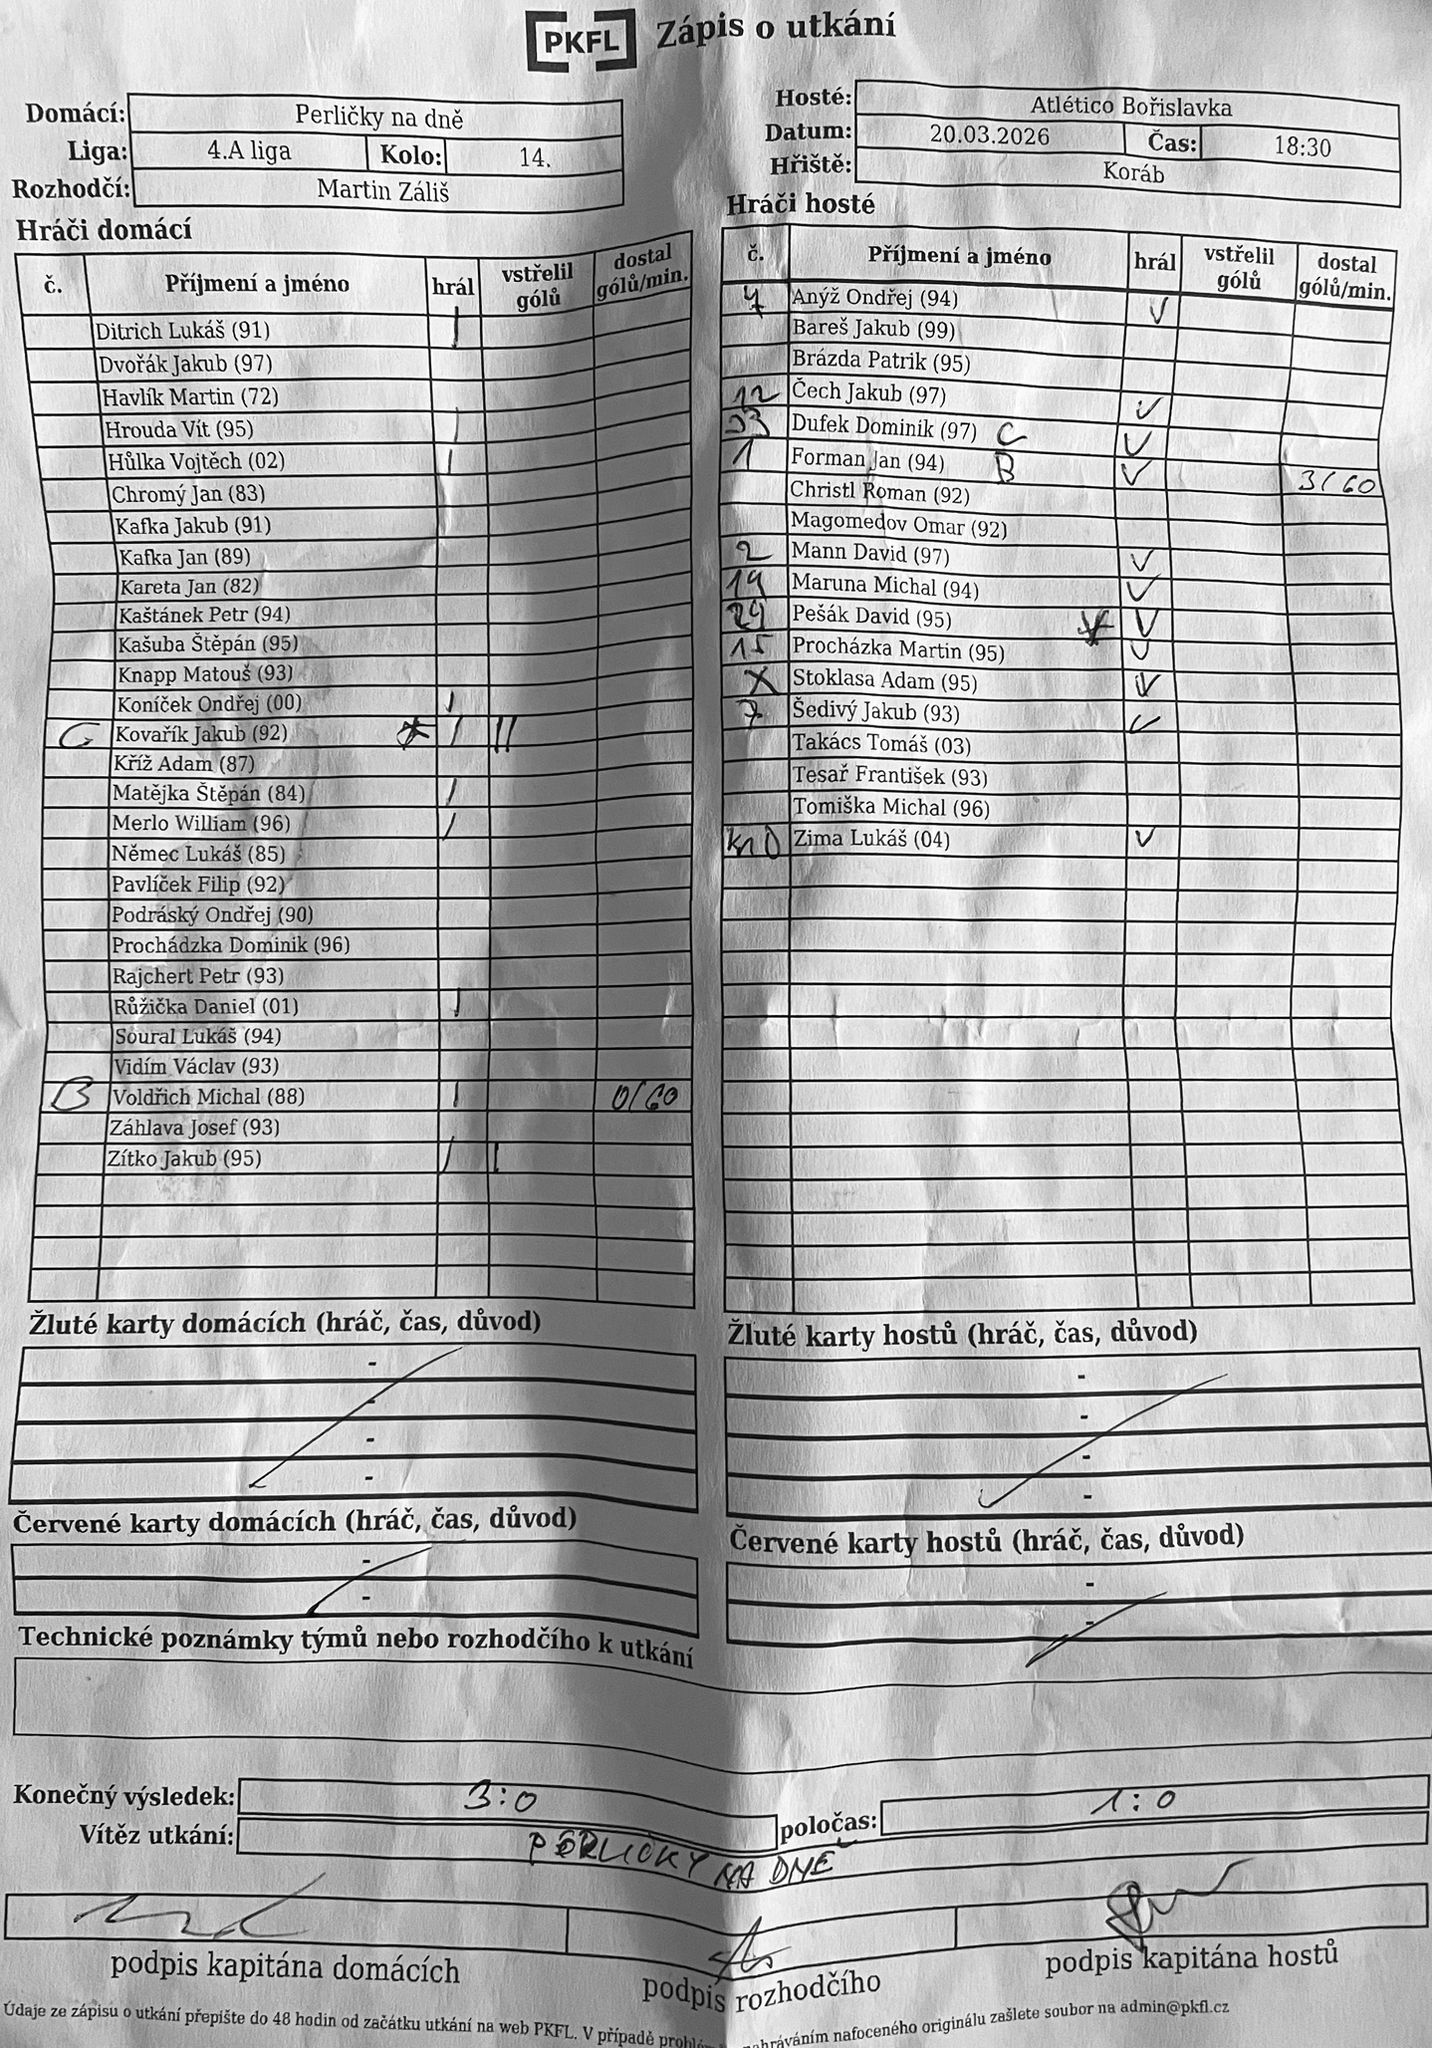 PKFL Zápis o utkání
Domácí: Perličky na dně
Liga: 4.A liga Kolo: 14.
Rozhodčí: Martin Záliš
Hosté: Atlético Bořislavka
Datum: 20.03.2026 Čas: 18:30
Hřiště: Koráb
Hráči domácí
č. Příjmení a jméno hrál vstřelil gólů dostal gólů/min.
Ditrich Lukáš (91) |
Dvořák Jakub (97)
Havlík Martin (72)
Hrouda Vít (95) |
Hůlka Vojtěch (02) |
Chromý Jan (83) |
Kafka Jakub (91) |
Kafka Jan (89)
Kareta Jan (82)
Kaštánek Petr (94)
Kašuba Štěpán (95)
Knapp Matouš (93)
Koníček Ondřej (00) |
C Kovařík Jakub (92) * | ||
Kříž Adam (87)
Matějka Štěpán (84) |
Merlo William (96) |
Němec Lukáš (85)
Pavlíček Filip (92)
Podráský Ondřej (90)
Prochádzka Dominik (96)
Rajchert Petr (93)
Růžička Daniel (01) |
Soural Lukáš (94)
Vidím Václav (93)
B Voldřich Michal (88) | 0/60
Záhlava Josef (93)
Zítko Jakub (95) | |
Hráči hosté
č. Příjmení a jméno hrál vstřelil gólů dostal gólů/min.
Anýž Ondřej (94) ✓
Bareš Jakub (99)
Brázda Patrik (95)
12 Čech Jakub (97) ✓
33 Dufek Dominik (97) C ✓
1 Forman Jan (94) B ✓ 3/60
Christl Roman (92)
Magomedov Omar (92)
2 Mann David (97) ✓
19 Maruna Michal (94) ✓
29 Pešák David (95) * ✓
15 Procházka Martin (95) ✓
X Stoklasa Adam (95) ✓
7 Šedivý Jakub (93) ✓
Takács Tomáš (03)
Tesař František (93)
Tomiška Michal (96)
Zima Lukáš (04) ✓
Žluté karty domácích (hráč, čas, důvod)
-
-
-
-
Žluté karty hostů (hráč, čas, důvod)
-
-
-
-
Červené karty domácích (hráč, čas, důvod)
-
-
Červené karty hostů (hráč, čas, důvod)
-
-
Technické poznámky týmů nebo rozhodčího k utkání
Konečný výsledek: 3:0 poločas: 1:0
Vítěz utkání: PERLIČKY NA DNĚ
podpis kapitána domácích podpis rozhodčího podpis kapitána hostů
Údaje ze zápisu o utkání přepište do 48 hodin od začátku utkání na web PKFL. V případě nafoceného originálu zašlete soubor na admin@pkfl.cz